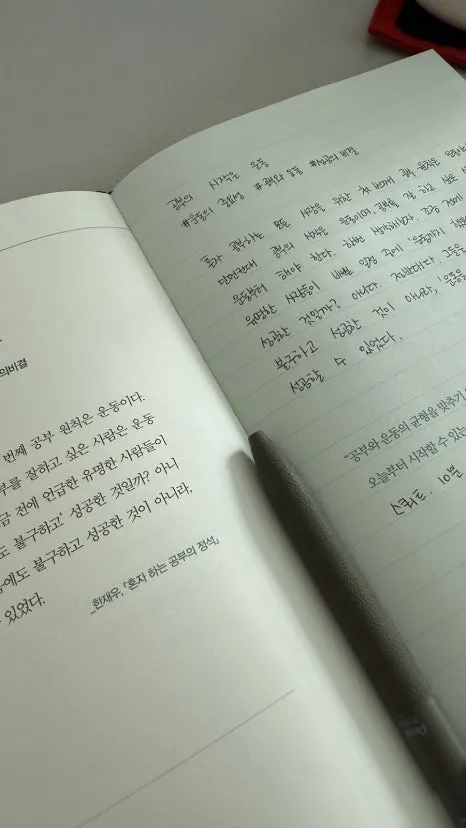 의비결
번째 공부 원칙은 운동이다.
부를 잘하고 싶은 사람은 운동
금 전에 언급한 유명한 사람들이
도 불구하고' 성공한 것일까? 아니
에도 불구하고 성공한 것이 아니라,
있었다.
_한재우, 『혼자 하는 공부의 정석』
공부의 시작은 운동
#운동의 중요성 #뇌와 운동 #성공의 비결
혼자 공부하는 모든 사람을 위한 첫 번째 공부 원칙은 운동이
단언컨대 공부의 시작은 운동이며, 공부를 잘 하고 싶은 사
운동부터 해야 한다. 한번 생각해보자. 조금 전에
유명한 사람들이 바쁠 일정 중에 '운동하기
성공한 것일까? 아니다. 정반대다. 그들은
불구하고 성공한 것이 아니라, '운동을
성공할 수 있었다.
"공부와 운동의 균형을 맞추기
오늘부터 시작할 수 있는
스쿼트. 10분